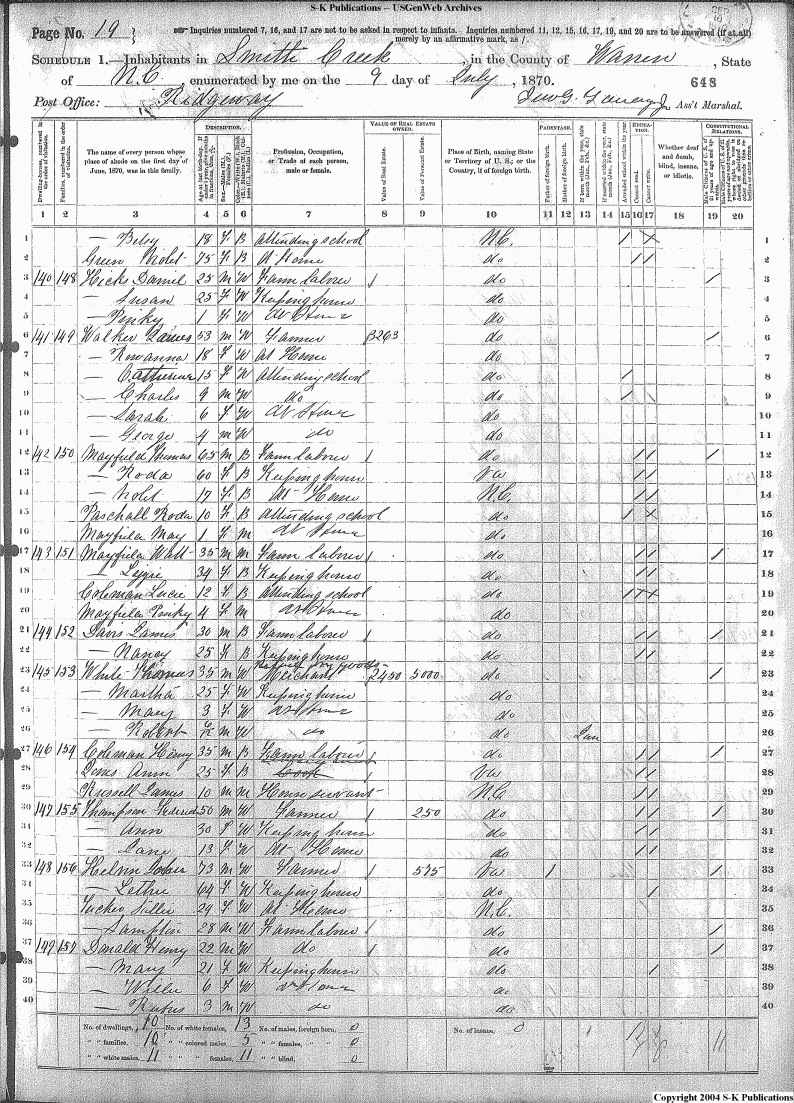 S-K Publications -- USGenWeb Archives
Page No. 19
Inquiries numbered 7, 16, and 17 are not to be asked in respect to infants. Inquiries numbered 11, 12, 15, 16, 17, 19, and 20 are to be answered (if at all)
merely by an affirmative mark, as /.
SCHEDULE 1.—Inhabitants in Smith Creek, in the County of Warren, State
of N.C., enumerated by me on the 9 day of July, 1870. 648
Post Office: Ridgeway Ass't Marshal.
Dwelling-houses, numbered in the order of visitation.
Families, numbered in the order of visitation.
The name of every person whose place of abode on the first day of June, 1870, was in this family.
DESCRIPTION.
Profession, Occupation, or Trade of each person, male or female.
VALUE OF REAL ESTATE OWNED.
Value of Real Estate.
Value of Personal Estate.
Place of Birth, naming State or Territory of U. S.; or the Country, if of foreign birth.
PARENTAGE.
Father of foreign birth.
Mother of foreign birth.
EDUCATION.
Attended school within the year.
Cannot read.
Cannot write.
Whether deaf and dumb, blind, insane, or idiotic.
CONSTITUTIONAL RELATIONS.
1 2 3 4 5 6 7 8 9 10 11 12 13 14 15 16 17 18 19 20
1 — Betsy 18 F B Attending school N.C. / × 1
2 Green Violet 75 F B At Home do / / 2
3 140 148 Hicks Daniel 25 M W Farm labour / do / 3
4 — Susan 25 F W Keeping house do 4
5 — Pinky 1 F W At Home do 5
6 141 149 Walker James 53 M W Farmer 3263 do / 6
7 — Rowanna 18 F W At Home do 7
8 — Catherine 15 F W Attending school do / 8
9 — Charles 9 M W do do / 9
10 — Sarah 6 F W At Home do 10
11 — George 4 M W do do 11
12 142 150 Mayfield Thomas 65 M B Farm labour / do / / / 12
13 — Roda 60 F B Keeping house Va / / 13
14 — Violet 17 F B At Home N.C. / / 14
15 Paschall Roda 10 F B Attending school do / × 15
16 Mayfield May 1 F M At Home do 16
17 143 151 Mayfield Watt 35 M M Farm labour / do / / / 17
18 — Lizzie 34 F B Keeping house do / / 18
19 Coleman Lucie 12 F B Attending school do / × × 19
20 Mayfield Pinky 4 F M At Home do 20
21 144 152 Davis James 30 M B Farm labour / do / / / 21
22 — Nancy 25 F B Keeping house do / / 22
23 145 153 White Thomas 35 M W Retail Dry goods Merchant 2450 5000 do / 23
24 — Martha 25 F W Keeping house do 24
25 — Mary 3 F W At Home do 25
26 — Robert M W do do Jan 26
27 146 154 Coleman Henry 35 M B Farm labour / do / / / 27
28 Ann 25 F B Va / / 28
29 Russell James 10 M M House servant N.C. / / 29
30 147 155 Thompson 50 M W Farmer / 250 do / / / 30
31 — Ann 30 F W Keeping house do / / 31
32 — Jane 13 F W At Home do / / 32
33 148 156 John 73 M W Farmer / 575 Va / / 33
34 — 64 F W Keeping house do / 34
35 Tucker 29 F W At Home N.C. 35
36 — 28 M W Farm labour / do / 36
37 149 157 Donald Henry 22 M W do / do / 37
38 — Mary 21 F W Keeping house do / 38
39 — Willie 6 F W At Home do 39
40 — Rufus 3 M W do do 40
No. of dwellings, 10 No. of white females, 13 No. of males, foreign born, 0 No. of insane, 0
" " families, 10 " " colored males, 5 " " females, " " 0
" " white males, 11 " " " females, 11 " " blind, 0 11
Copyright 2004 S-K Publications